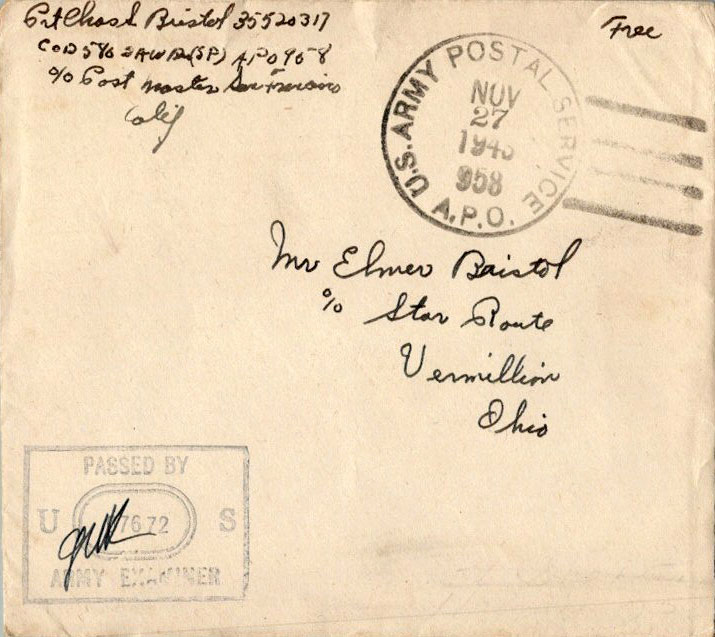 Pvt Chas L Bristol 35520317
Co D 576 SAWBn(SP) APO 958
c/o Post master San Francisco
Calif
Free
U.S. ARMY POSTAL SERVICE
NOV
27
194
958
A.P.O.
Mr Elmer Bristol
c/o Star Route
Vermillion
Ohio
PASSED BY
U 7672 S
ARMY EXAMINER